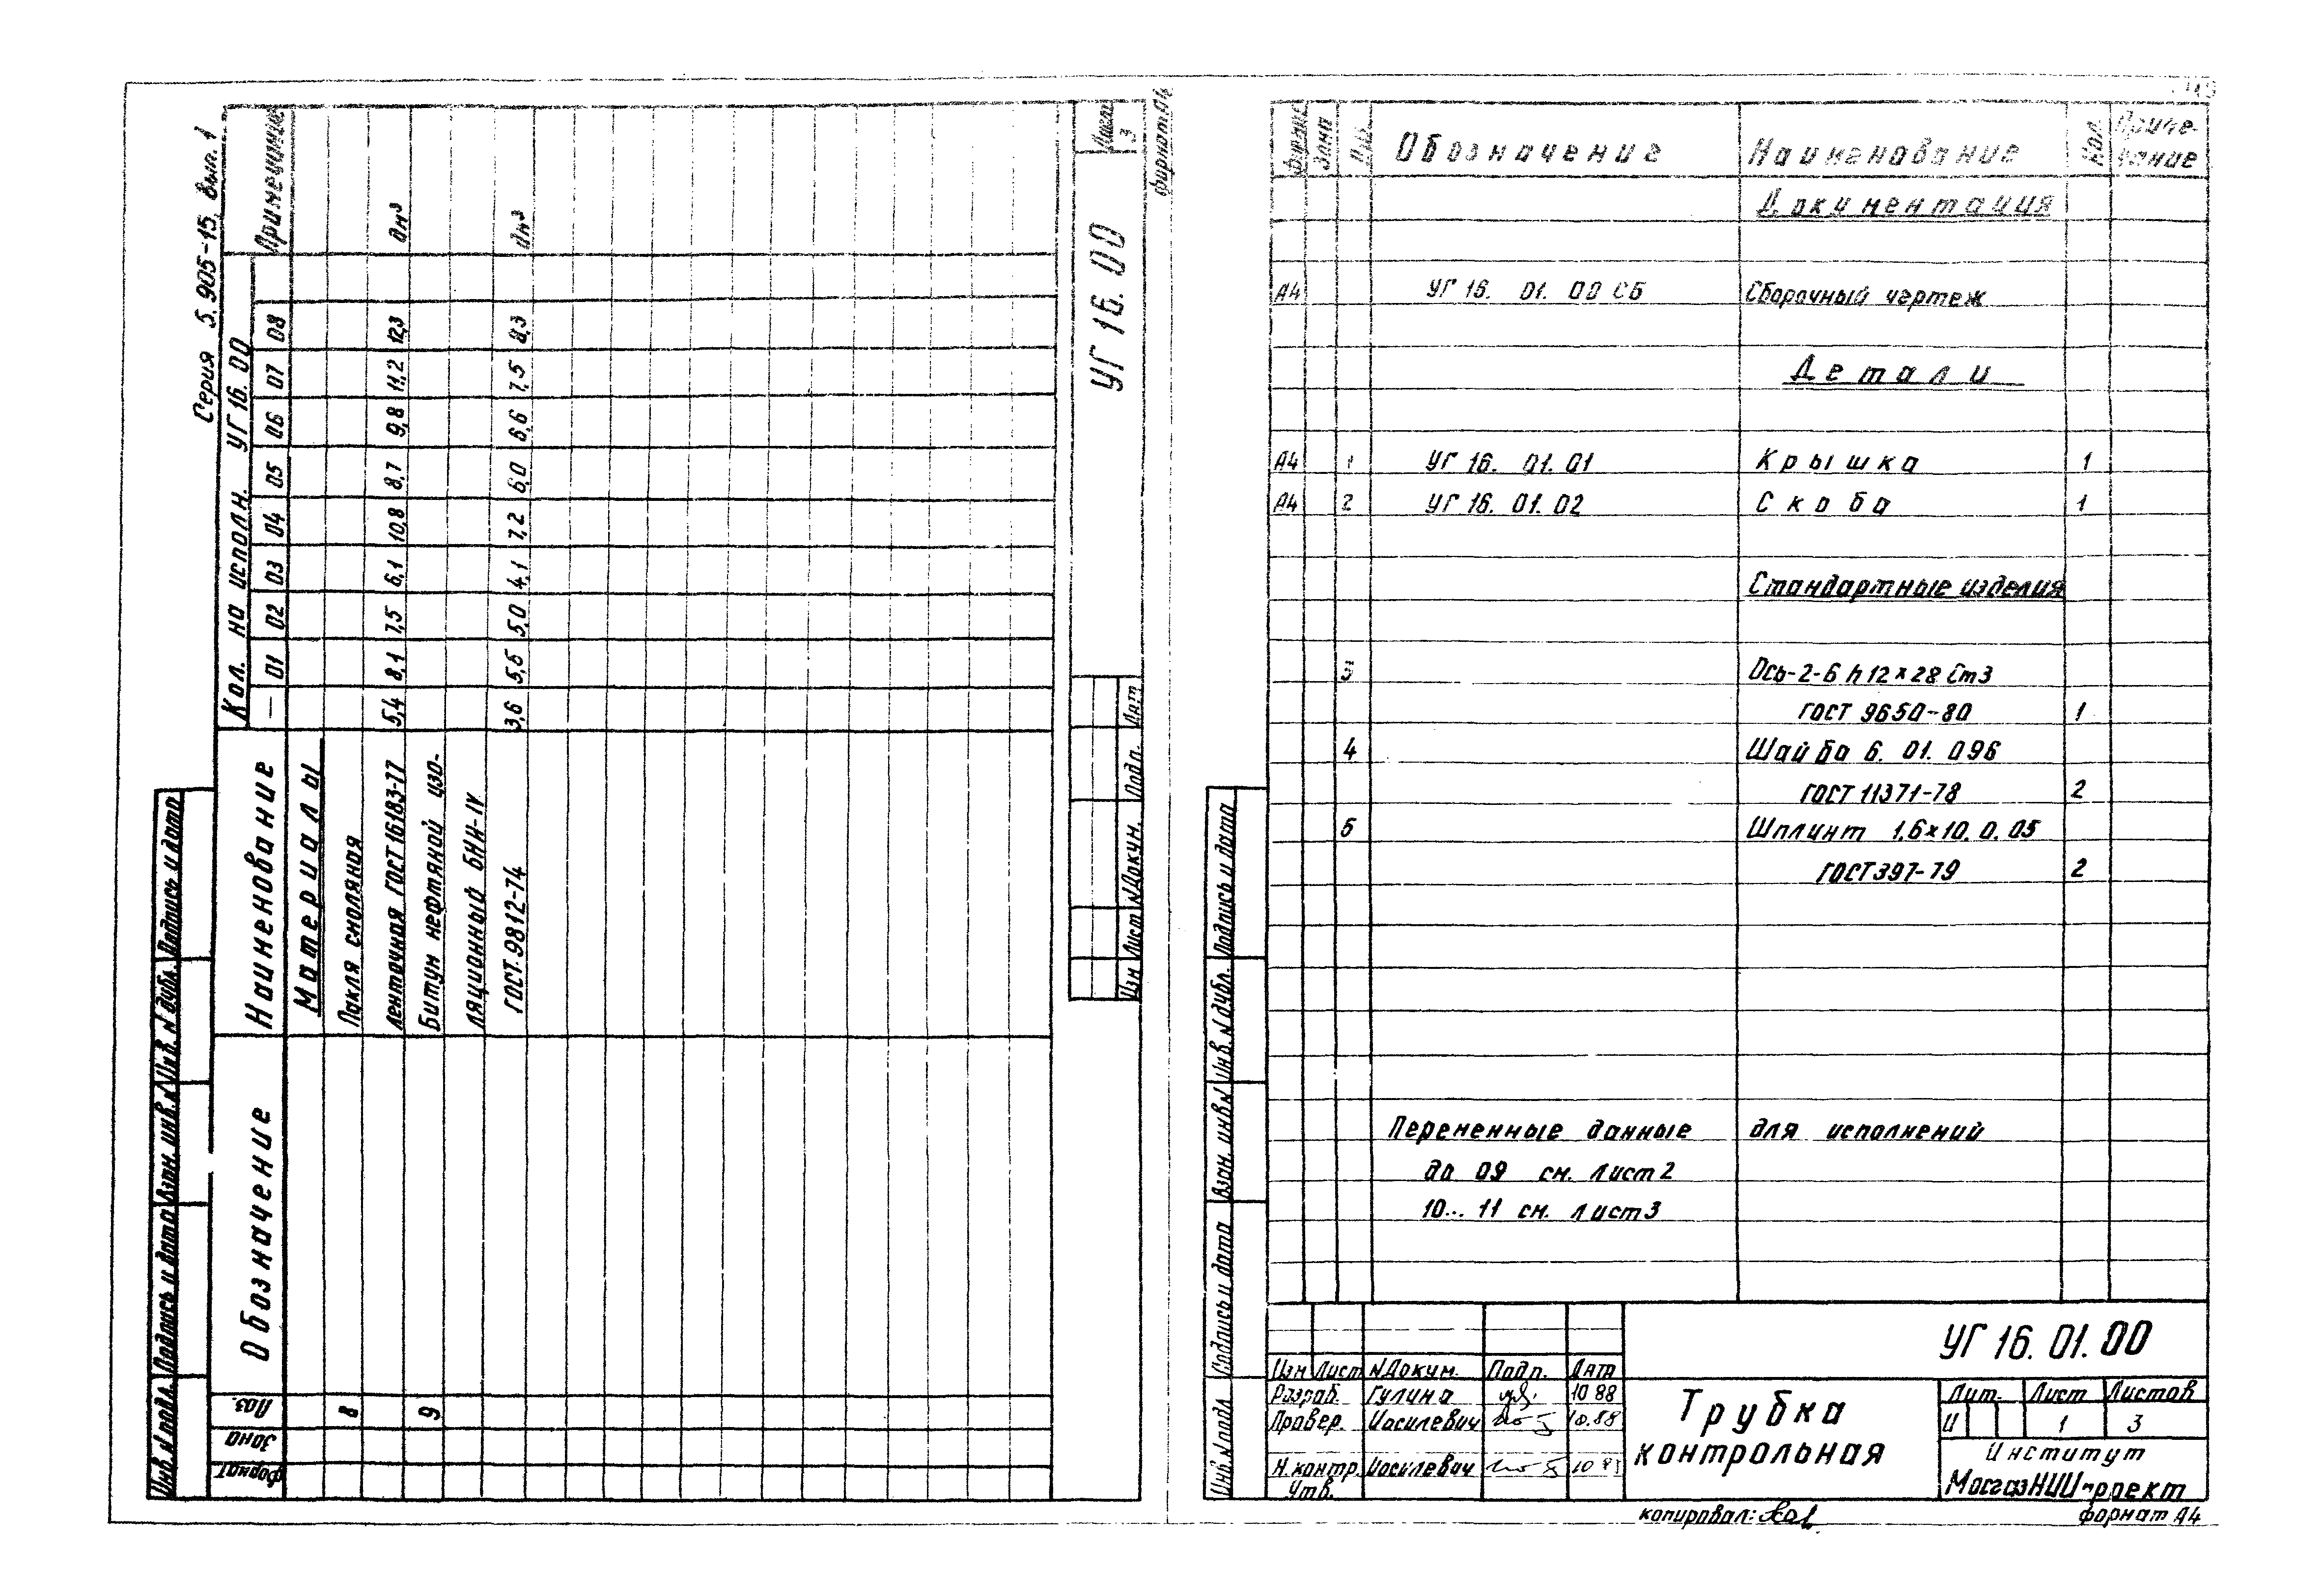 Серия 5.905-15. вып. 1
Формат Зона Поз. Обозначение Наименование Кол. на исполн. УГ 16.00 Примечание
— 01 02 03 04 05 06 07 08
Материалы
8 Пакля смоляная
ленточная ГОСТ 16183-77 5,4 8,1 7,5 6,1 10,8 8,7 9,8 11,2 12,3 дм³
9 Битум нефтяной изо-
ляционный БНИ-IV
ГОСТ.9812-74 3,6 5,5 5,0 4,1 7,2 6,0 6,6 7,5 8,3 дм³
Изм Лист N Докум. Подп. Дат
УГ 16.00
Лист
3
формат А4
Инв. N подл. Подпись и дата Взам. инв. N Инв. N дубл. Подпись и дата
Формат Зона Поз. Обозначение Наименование Кол. Приме-
чание
Документация
А4 УГ 16. 01. 00 СБ Сборочный чертеж
Детали
А4 1 УГ 16. 01. 01 Крышка 1
А4 2 УГ 16. 01. 02 Скоба 1
Стандартные изделия
3 Ось-2-6 h 12×28 Ст3
ГОСТ 9650-80 1
4 Шайба 6. 01. 096
ГОСТ 11371-78 2
5 Шплинт 1,6×10. 0. 05
ГОСТ 397-79 2
Переменные данные для исполнений
до 09 см. лист 2
10... 11 см. лист 3
Инв. N подл Подпись и дата Взам. инв N Инв. N дубл. Подпись и дата
УГ 16. 01. 00
Изм Лист N Докум. Подп. Дата
Разраб. Гулина 10 88
Провер. Иосилевич 10.88
Н.контр. Иосилевич
Утв.
Трубка
контрольная
Лит. Лист Листов
И 1 3
Институт
МосгазНИИпроект
копировал:
формат А4